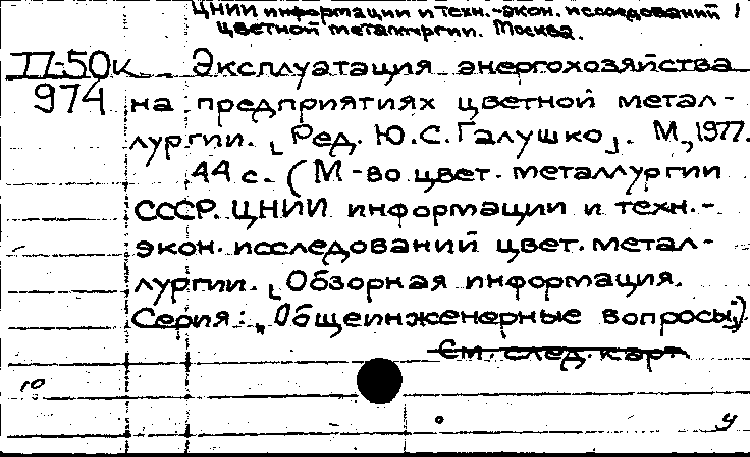 ЦНИИ информации и техн.-экон. исследований
цветной металлургии. Москва.
П-50к Эксплуатация энергохозяйства
974 на предприятиях цветной метал-
лургии. [Ред. Ю.С. Галушко]. М., 1977.
44 с. (М-во цвет. металлургии
СССР. ЦНИИ информации и техн.-
экон. исследований цвет. метал-
лургии. [Обзорная информация.
Серия: "Общеинженерные вопросы")
См. след. карт
10
у